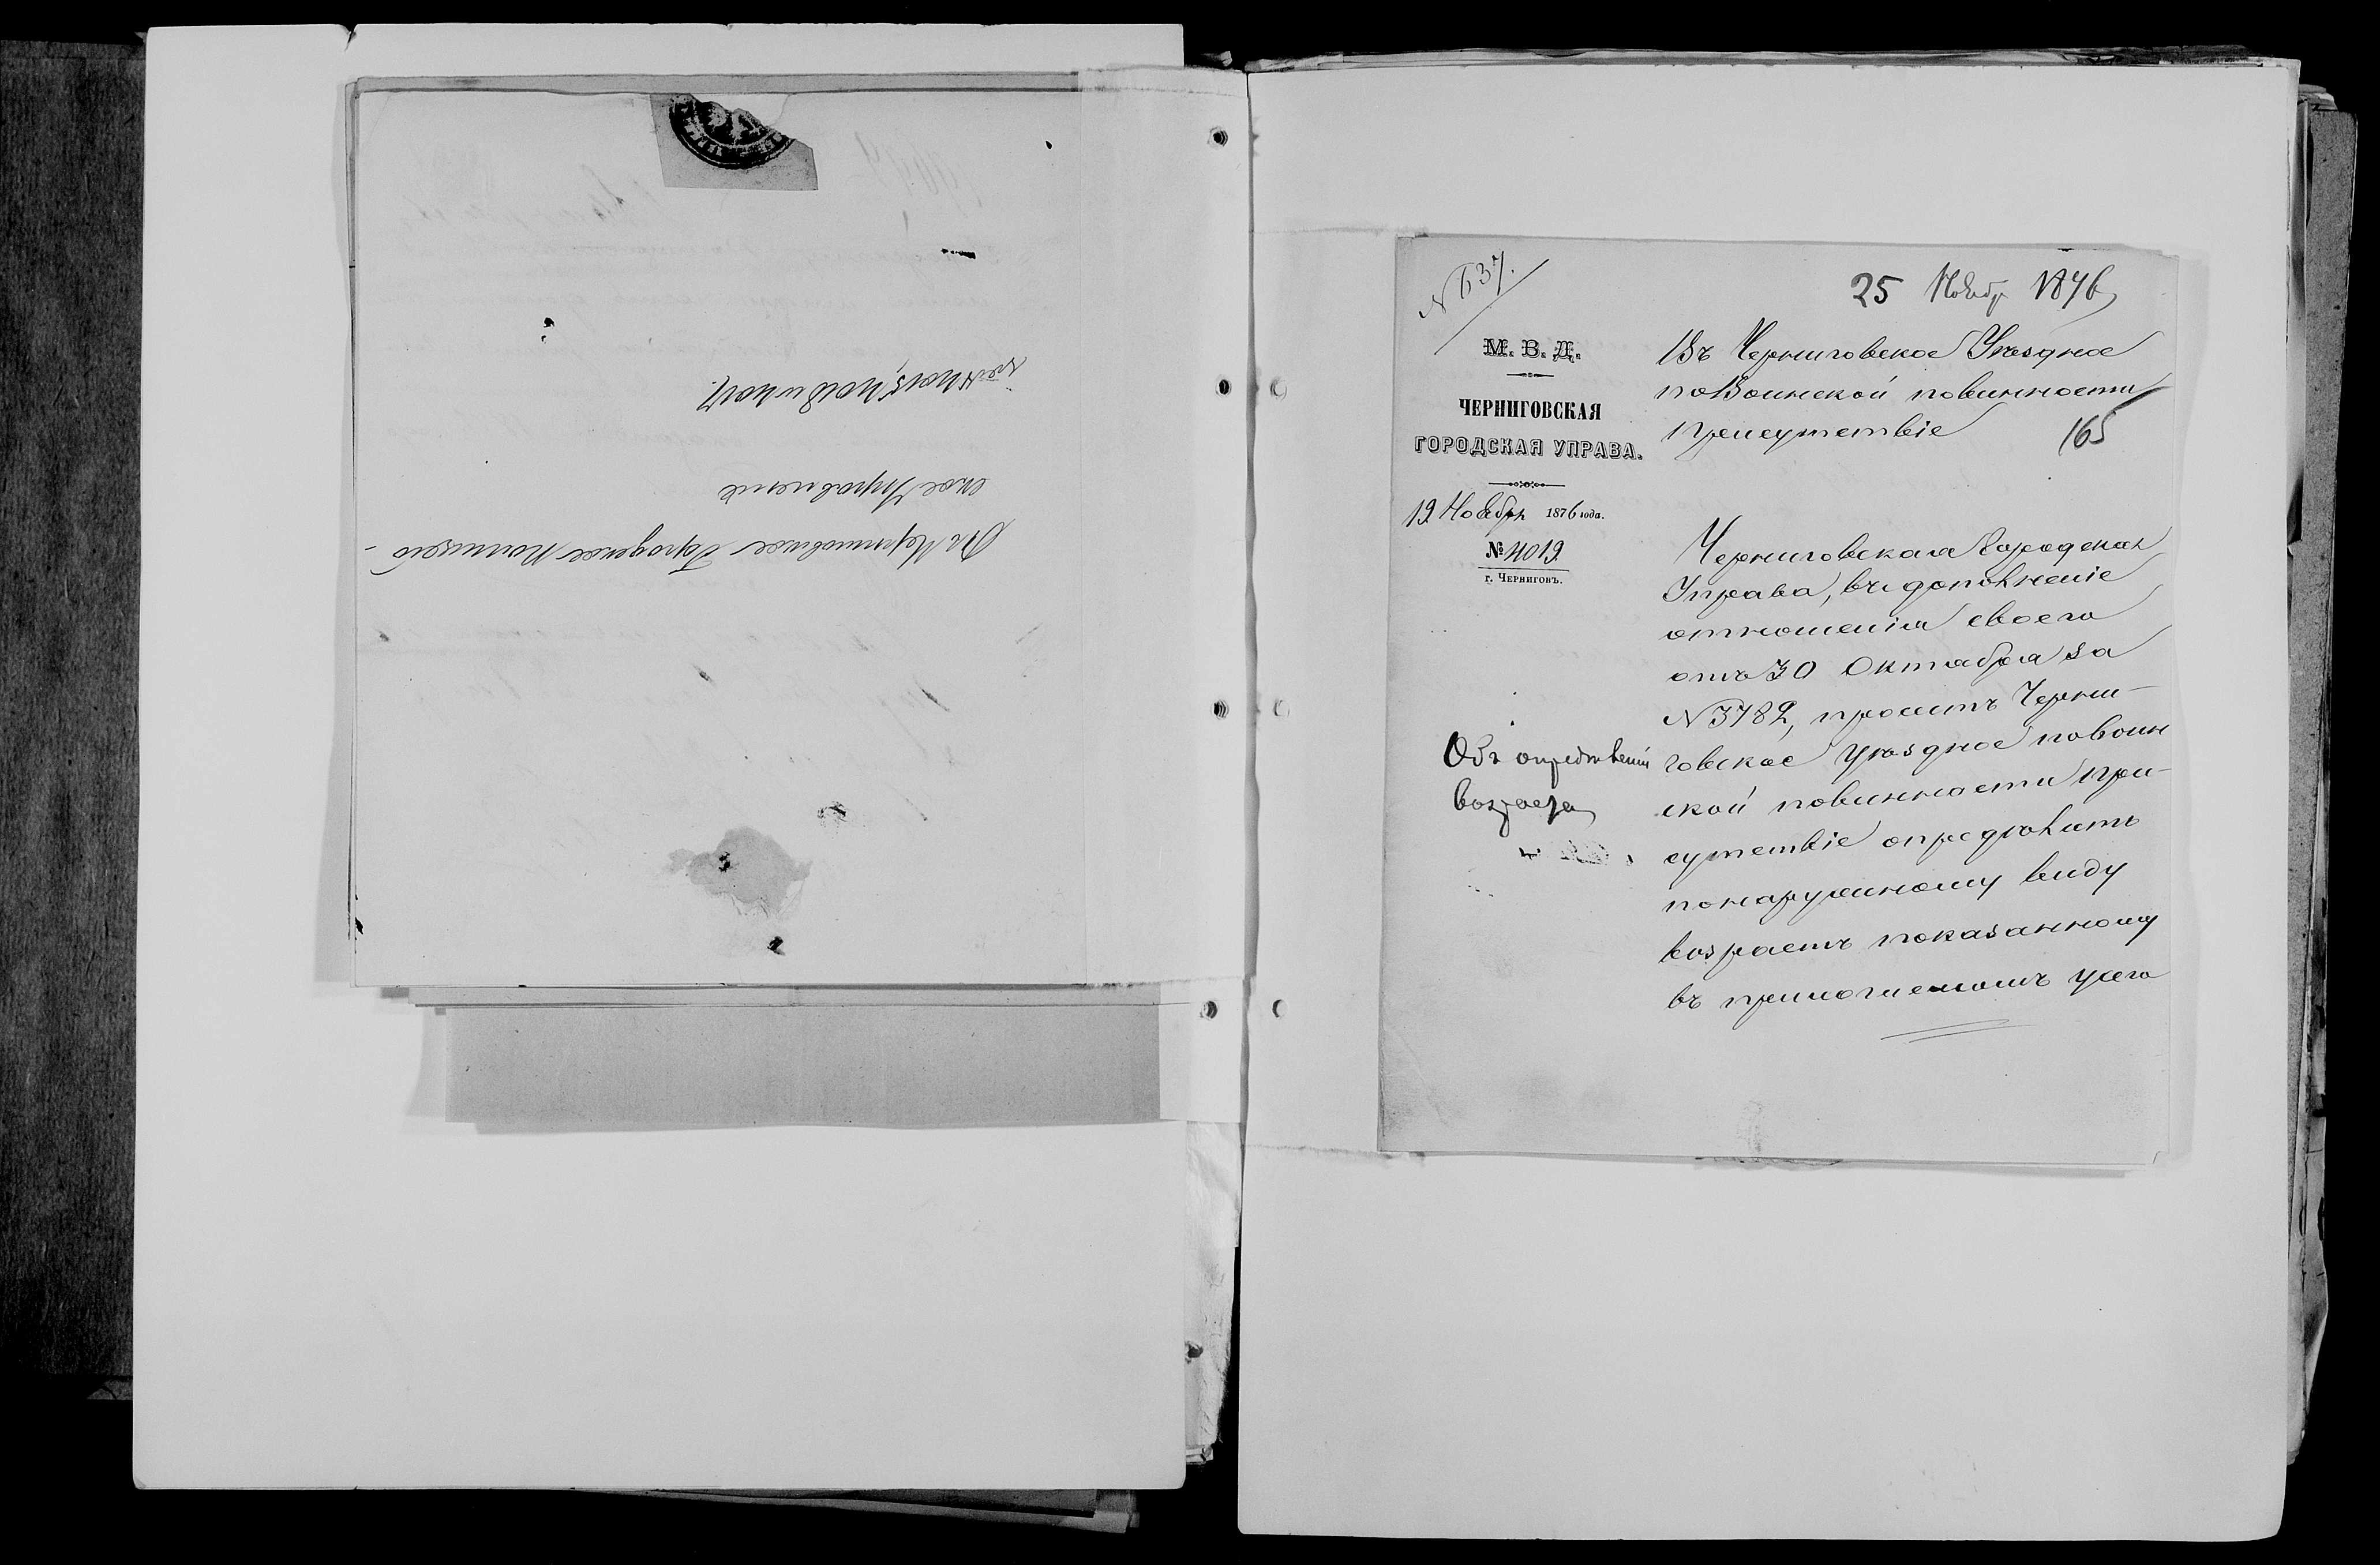 Въ Черниговское Городское Полицей-
ское Управленіе
N 637.
25 Ноябр 1876
М. В. Д.
ЧЕРНИГОВСКАЯ
ГОРОДСКАЯ УПРАВА.
19 Ноября 1876 года.
№ 4019
г. Черниговъ.
Объ опредѣленіи
возраста
Въ Черниговское Уѣздное
по Воинской повинности
Присутствіе
165
Черниговская Городская
Управа, въ дополненіе
отношенія своего
отъ 30 Октября за
N 3782, проситъ Черни-
говское Уѣздное по воин
ской повинности При-
сутствіе опредѣлить
по наружному виду
возрастъ показанному
въ прилогаемомъ у сего